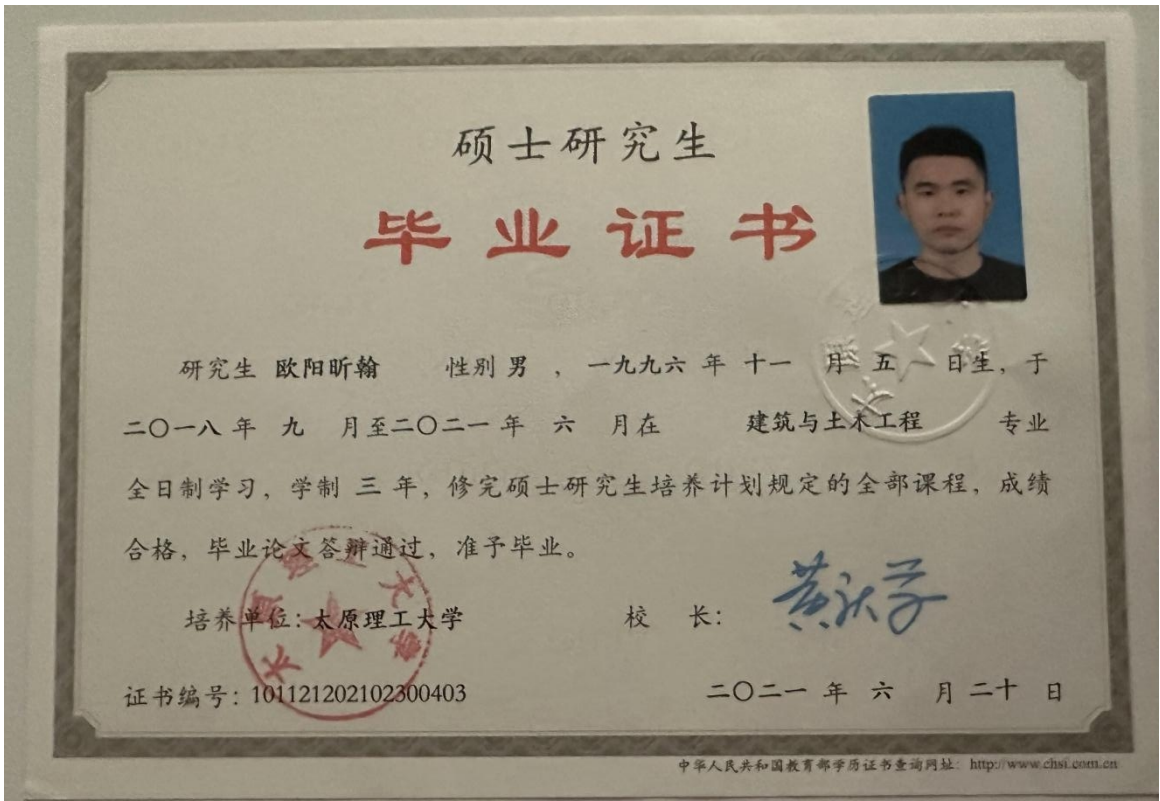 硕士研究生
毕业证书
研究生 欧阳昕翰 性别 男 ，一九九六 年 十一 月 五 日生，于
二〇一八 年 九 月至二〇二一 年 六 月在 建筑与土木工程 专业
全日制学习，学制 三 年，修完硕士研究生培养计划规定的全部课程，成绩
合格，毕业论文答辩通过，准予毕业。
培养单位：太原理工大学 校 长：
太原理工大学
证书编号：101121202102300403 二〇二一 年 六 月 二十 日
中华人民共和国教育部学历证书查询网址：http://www.chsi.com.cn